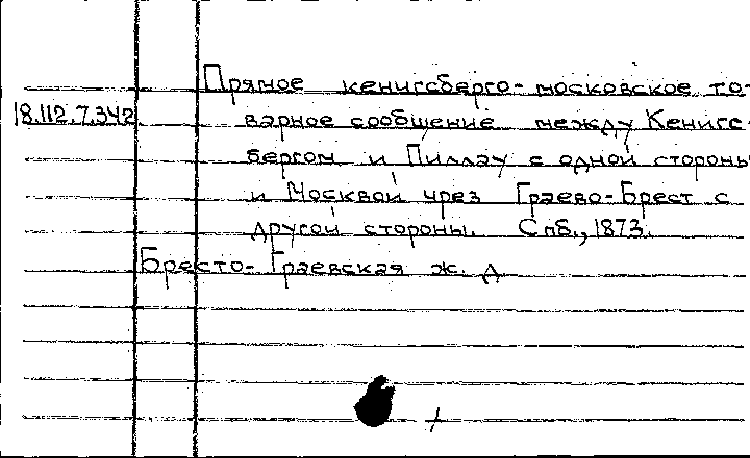 Прямое кенигсберго-московское то-
18.112.7.342 варное сообщение между Кенигс-
бергом и Пиллау с одной стороны
и Москвой чрез Граево-Брест с
другой стороны. Спб., 1873.
Бресто-Граевская ж. д